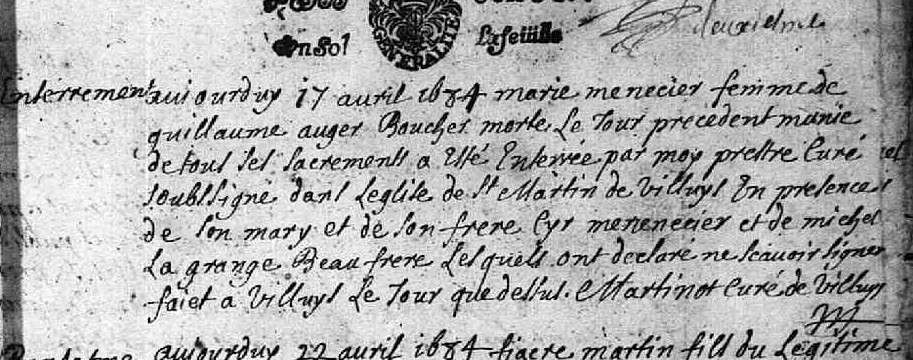 un sol La feuille deuxiesme
GENERALITE
Enterrement aujourduy 17 avril 1684 marie menecier femme de
guillaume auger Boucher morte Le Jour precedent munie
de tous ses sacrements a esté Enterrée par moy prestre Curé
soubssigné dans Leglise de St Martin de Villuys En presence
de son mary et de son frere Cyr menenecier et de michel
La grange Beau frere Lesquels ont declaré ne scavoir signer
faict a Villuys Le Jour que dessus. Martinot Curé de Villuys
aujourduy 22 avril 1684 fiacre martin fils du Legitime